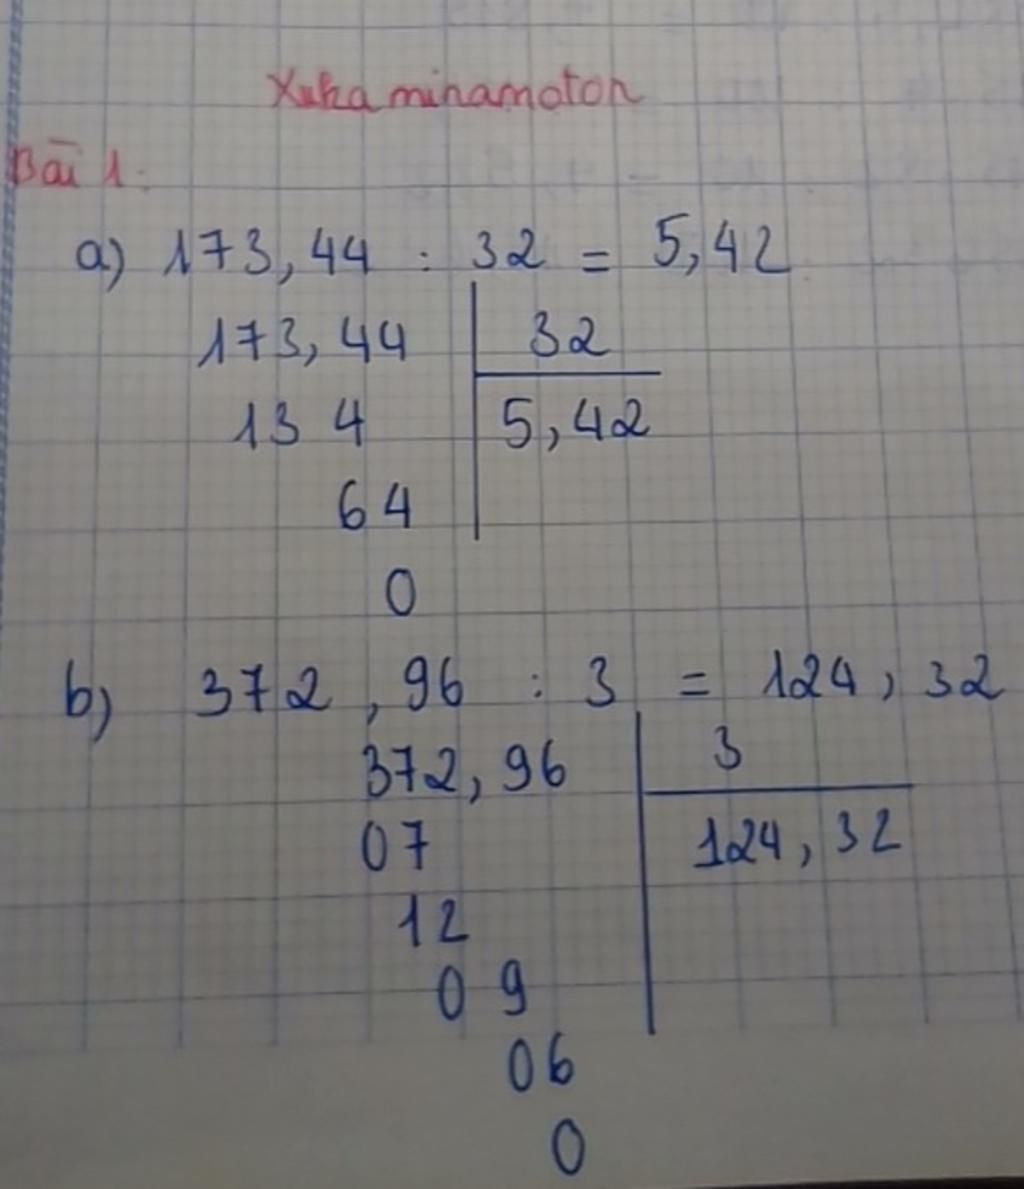 Xuka minamoton
Bài 1:
a) 173,44 : 32 = 5,42
173,44 32
13 4 5,42
64
0
b) 372,96 : 3 = 124,32
372,96 3
07 124,32
12
09
06
0